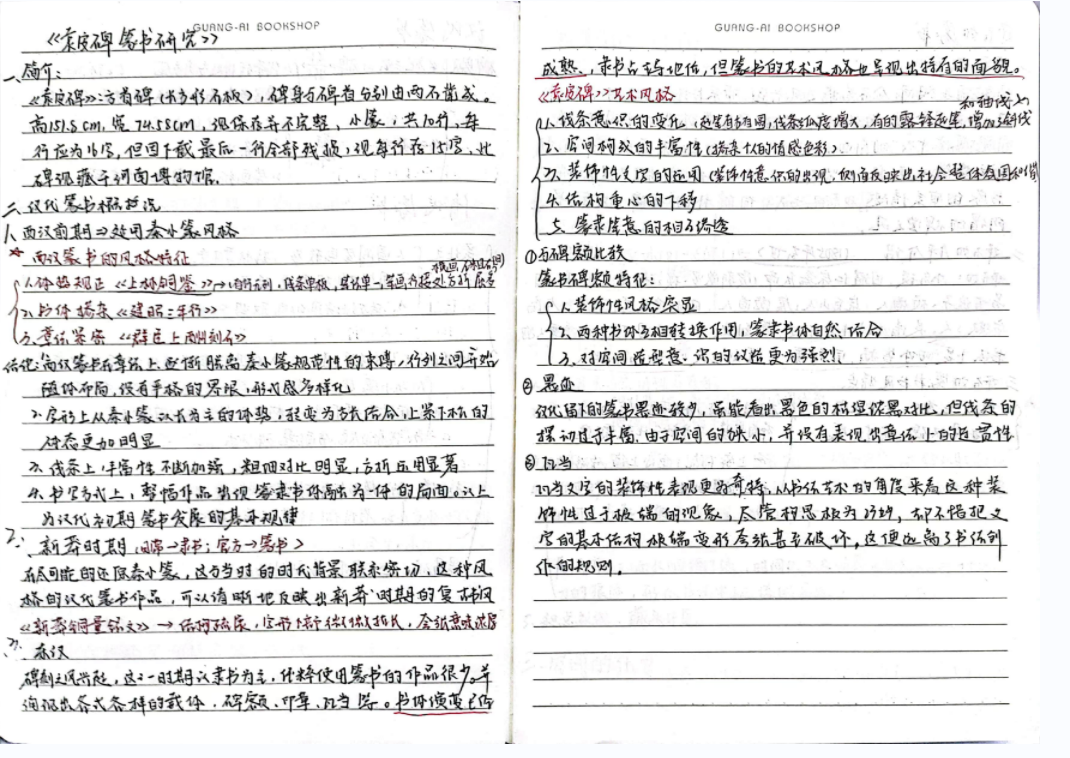 GUANG-AI BOOKSHOP
《袁安碑篆书研究》
一、简介:
《袁安碑》:方首碑(长方形石板),碑身与碑首分别由两石凿成。
高151.8cm,宽74.58cm,现保存并不完整,小篆;共10行,每
行应为16字,但因下截最后一行全部残损,现每行在15字,此
碑现藏于河南博物馆。
二、汉代篆书概况
1、西汉前期→效用秦小篆风格
* 西汉篆书的风格特征
1、体势规正《上林铜鉴》→
2、书体《建昭三年行》
3、章法紧密《群臣上酬刻石》
结论:西汉篆书在章法上逐渐脱离秦小篆规范性的束缚,行列之间开始
随体布局,没有严格的界限,形式感多样化
2、字形上从秦小篆以长为主的体势,转变为方长结合,上紧下松的
体态更加明显
3、线条上,丰富性不断加强,粗细对比明显,方折应用显著
4、书写方式上,整幅作品出现篆隶书体融为一体的局面。以上
为汉代初期篆书发展的基本规律
2、新莽时期(日常→隶书;官方→篆书)
在尽可能的还原秦小篆,这与当时的时代背景联系密切,这种风
格的汉代篆书作品,可以清晰地反映出新莽时期的复古风
《新莽铜量铭文》→
3、东汉
碑刻之风兴起,这一时期以隶书为主,纯粹使用篆书的作品很少。并
涌现出各式各样的载体,碑额、印章、瓦当等。书体演变已经
GUANG-AI BOOKSHOP
成熟,隶书占主导地位,但篆书的艺术风格也呈现出特有的面貌。
《袁安碑》艺术风格
1、线条意识的变化
2、空间构成的丰富性
3、装饰性文字的运用
4、结构重心的下移
5、篆隶笔意的相互借鉴
①与碑额比较
篆书碑额特征:
1、装饰性风格突显
2、两种书体互相转换作用,篆隶书体自然结合
3、对空间造型意识的仪造更为强烈
②墨迹
汉代留下的篆书墨迹较少,虽能看出墨色的枯湿浓墨对比,但线条的
摆动过于丰富,由于空间的狭小,并没有表现出章法上的连贯性
③瓦当
瓦当文字的装饰性表现更为奇特,从书法艺术的角度来看这种装
饰性过于极端的现象,尽管构思极为巧妙,却不惜把文
字的基本结构极端变形夸张甚至破坏,这便远离了书法创
作的规则。